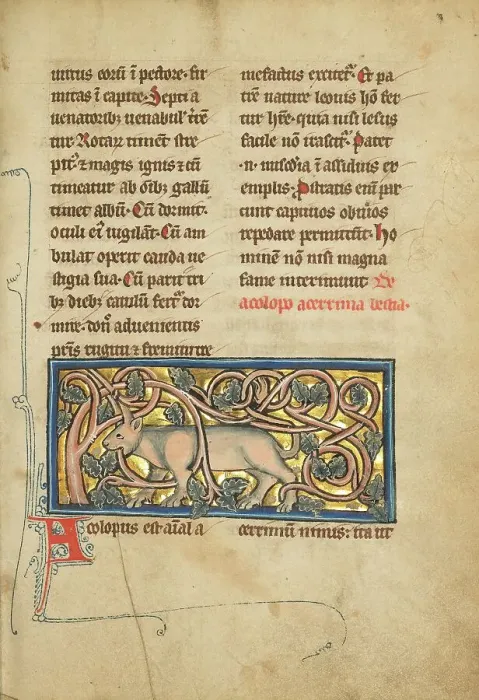 uirtus eorū ī pectore · fir
mitas ī capite · Septi a
uenatoribꝰ uenabul' t̄re
tur Rotaꝝ timēt stre
pitꝰ ⁊ magis ignis ⁊ cū
timeatur ab oībꝫ gallū
timet albū · Cū dormīt ·
oculi eiꝰ uigilāt · Cū am
bulat operit cauda ue
stigia sua · Cū parit tri
bꝫ diebꝫ catulū fertꝰ dor
mire · donꝰ aduenientis
pr̄is rugitu ⁊ fremitu tre
mefactus excitetꝰ · Et pa
trē nature leonis hō fer
tur hr̄e · quia nisi lesus
facile nō irascitꝰ · Patet
· n · mīscdīa ī assiduis ex
emplis · Pstratis enī par
cunt captiuos obuīos
repedare permittūt · Ho
minē nō nisi magna
fame interimunt De
acolopo acerrima bestia ·
Acolopus est aīal a
cerrimū nimis : ita ut